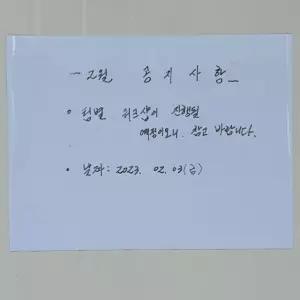 - 2월 공지사항 -
• 팀별 워크샵이 진행될
예정이오니, 참고 바랍니다.
• 날짜 : 2023. 02. 03(금)